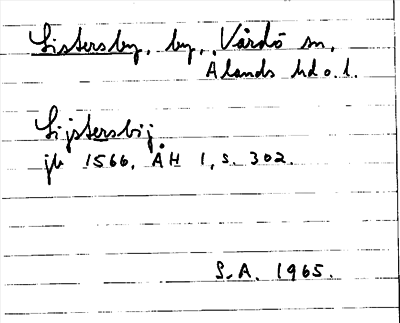 Listersby, by, Vårdö sn,
Ålands hd o. l.
Lijstersbij
jb 1566, ÅH 1, s. 302.
S.A. 1965.